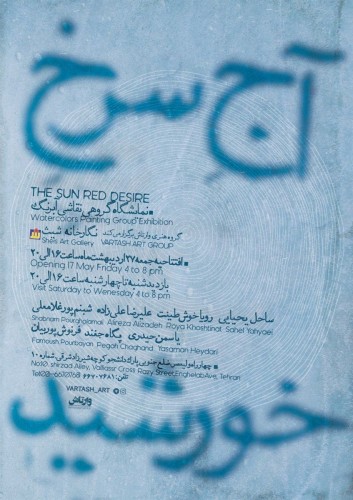 آجِ سرخِ
THE SUN RED DESIRE
■ نمایشگاه گروهی نقاشی آبرنگ
Watercolors Painting Group Exhibition
گروه هنری وارتش برگزار می‌کند نگارخانه شیث
Sheis Art Gallery VARTASH ART GROUP
■ افتتاحیه جمعه ۲۷ اردیبهشت ماه ساعت ۱۶ الی ۲۰
Opening 17 May Friday 4 to 8 pm
بازدید شنبه تا چهارشنبه ساعت ۱۶ الی ۲۰
Visit Saturday to Wenesday 4 to 8 pm
ساحل یحیایی رویا خوش طینت علیرضا علی زاده شبنم پورغلامعلی
Shabnam Pourgholamali Alireza Alizadeh Roya Khoshtinat Sahel Yahyaei
یاسمن حیدری پگاه جغند فرنوش پوربیان
Farnoush Pourbayan Pegah Choghand Yasaman Heydari
■ چهارراه ولیعصر ضلع جنوبی پارک دانشجو کوچه شیرزاد شرقی شماره ۱۰
No.10 shirzad Alley, Valiasr Cross Razy Street, Enghelab Ave, Tehran
تلفن: ۶۶۷۰۷۶۸۱
VARTASH_ART
وارتاش
خورشید